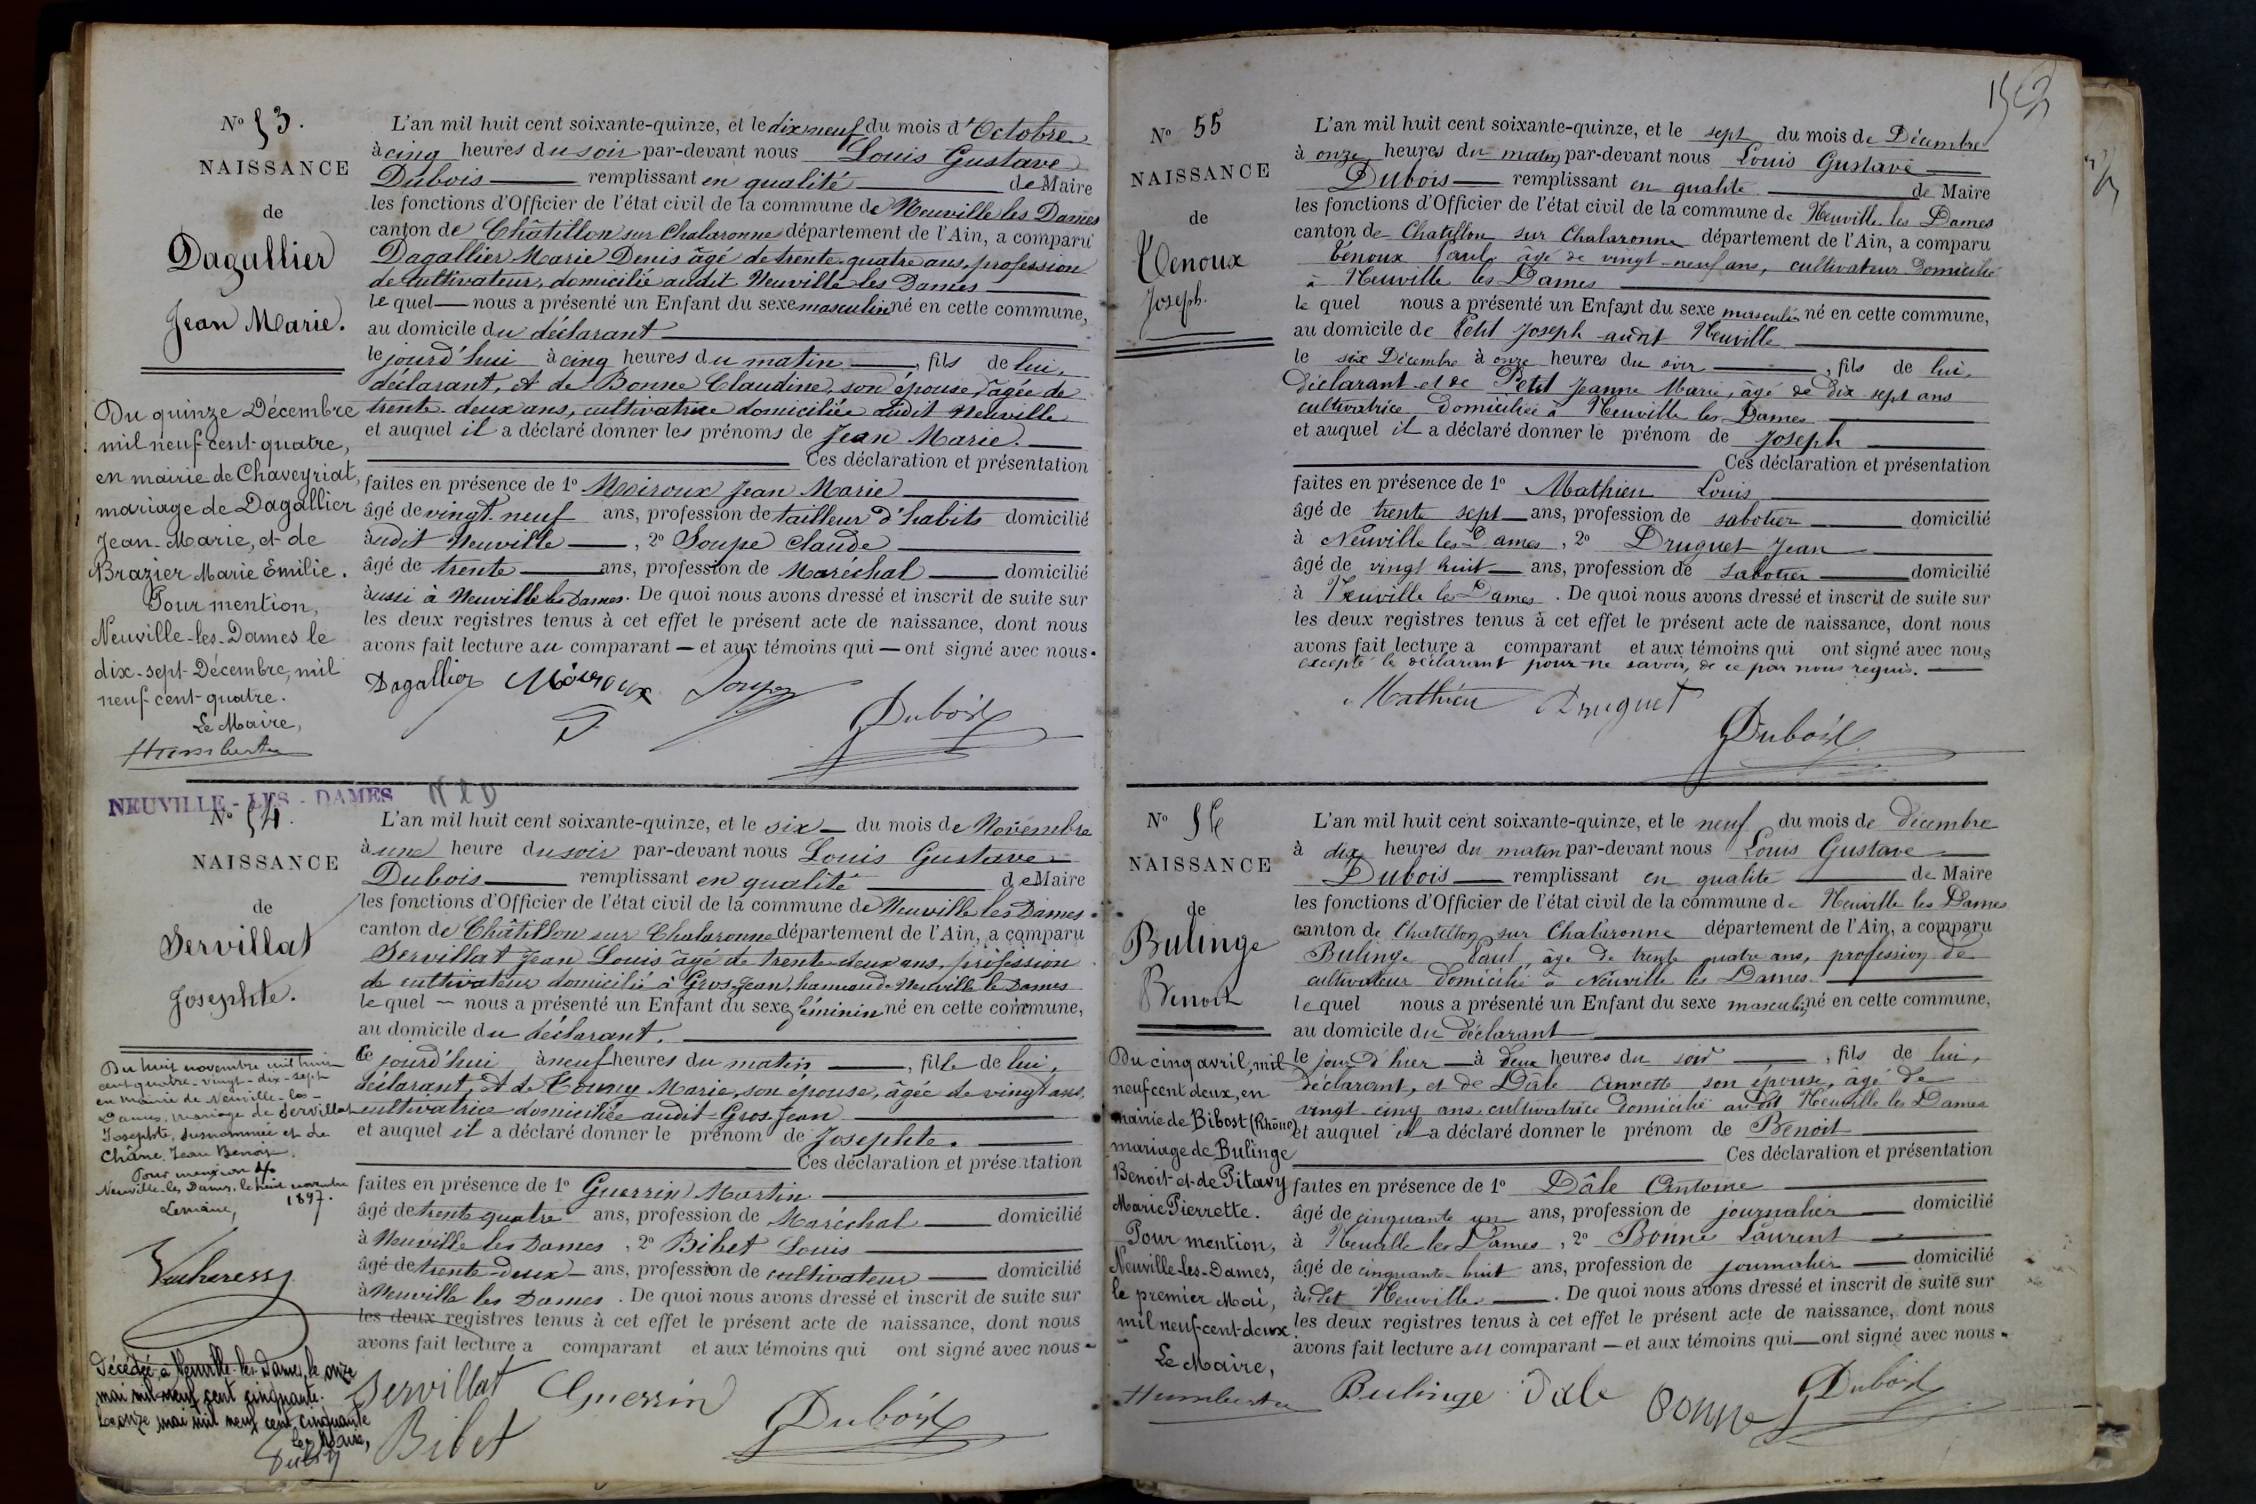 N° 53.
NAISSANCE
de
Dagallier
Jean Marie.
Du quinze Décembre
mil neuf cent quatre,
en mairie de Chaveyriat,
mariage de Dagallier
Jean-Marie, et de
Brazier Marie Emilie.
Pour mention,
Neuville-les-Dames le
dix-sept Décembre, mil
neuf cent quatre.
Le Maire,
Humbert
L'an mil huit cent soixante-quinze, et le dix neuf du mois d'Octobre
à cinq heures du soir par-devant nous Louis Gustave
Dubois remplissant en qualité de Maire
les fonctions d'Officier de l'état civil de la commune de Neuville les Dames
canton de Châtillon sur Chalaronne département de l'Ain, a comparu
Dagallier Marie Denis âgé de trente-quatre ans, profession
de cultivateur, domicilié audit Neuville les Dames
le quel nous a présenté un Enfant du sexe masculin né en cette commune,
au domicile du déclarant
le jourd'hui à cinq heures du matin, fils de lui,
déclarant, et de Bonne Claudine, son épouse, âgée de
trente-deux ans, cultivatrice domiciliée audit Neuville
et auquel il a déclaré donner les prénoms de Jean Marie.
Ces déclaration et présentation
faites en présence de 1° Moiroux Jean Marie
âgé de vingt-neuf ans, profession de tailleur d'habits domicilié
audit Neuville, 2° Soupe Claude
âgé de trente ans, profession de Maréchal domicilié
aussi à Neuville les Dames. De quoi nous avons dressé et inscrit de suite sur
les deux registres tenus à cet effet le présent acte de naissance, dont nous
avons fait lecture au comparant — et aux témoins qui — ont signé avec nous.
Dagallier Moiroux Soupe
Dubois
NEUVILLE-LES-DAMES NLD
N° 54.
NAISSANCE
de
Servillat
Josephte.
Du huit novembre mil huit
cent quatre-vingt-dix-sept
en mairie de Neuville-les-
Dames, mariage de Servillat
Josephte, susnommée et de
Châne Jean Benoit.
Pour mention
Neuville-les-Dames, le huit novembre
1897.
Le maire,
Décédée à Neuville-les-Dames le onze
mai mil neuf cent cinquante.
Le onze mai mil neuf cent cinquante
Le Maire,
L'an mil huit cent soixante-quinze, et le six du mois de Novembre
à une heure du soir par-devant nous Louis Gustave
Dubois remplissant en qualité de Maire
les fonctions d'Officier de l'état civil de la commune de Neuville les Dames
canton de Châtillon sur Chalaronne département de l'Ain, a comparu
Servillat Jean Louis âgé de trente-deux ans, profession
de cultivateur domicilié à Gros-Jean, hameau de Neuville les Dames
le quel — nous a présenté un Enfant du sexe féminin né en cette commune,
au domicile du déclarant.
Ce jourd'hui à neuf heures du matin, fille de lui,
déclarant, et de Marie, son épouse, âgée de vingt ans,
cultivatrice domiciliée audit Gros Jean
et auquel il a déclaré donner le prénom de Josephte.
Ces déclaration et présentation
faites en présence de 1° Guerrin Martin
âgé de trente quatre ans, profession de Maréchal domicilié
à Neuville les Dames, 2° Bibet Louis
âgé de trente-deux ans, profession de cultivateur domicilié
à Neuville les Dames. De quoi nous avons dressé et inscrit de suite sur
les deux registres tenus à cet effet le présent acte de naissance, dont nous
avons fait lecture a comparant et aux témoins qui ont signé avec nous
Servillat Guerrin
Bibet Dubois
N° 55
NAISSANCE
de
Venoux
Joseph.
L'an mil huit cent soixante-quinze, et le sept du mois de Décembre
à onze heures du matin par-devant nous Louis Gustave
Dubois remplissant en qualité de Maire
les fonctions d'Officier de l'état civil de la commune de Neuville les Dames
canton de Chatillon sur Chalaronne département de l'Ain, a comparu
Vénoux Paul, âgé de vingt-neuf ans, cultivateur domicilié
à Neuville les Dames
le quel nous a présenté un Enfant du sexe masculin né en cette commune,
au domicile de Petit Joseph audit Neuville
le six Décembre à onze heures du soir, fils de lui,
déclarant et de Petit Jeanne Marie, âgé de dix sept ans
cultivatrice, domiciliée à Neuville les Dames
et auquel il a déclaré donner le prénom de Joseph
Ces déclaration et présentation
faites en présence de 1° Mathieu Louis
âgé de trente sept ans, profession de sabotier domicilié
à Neuville les Dames, 2° Druguet Jean
âgé de vingt huit ans, profession de sabotier domicilié
à Neuville les Dames. De quoi nous avons dressé et inscrit de suite sur
les deux registres tenus à cet effet le présent acte de naissance, dont nous
avons fait lecture a comparant et aux témoins qui ont signé avec nous
excepté le déclarant pour ne savoir, de ce par nous requis.
Mathieu Druguet
Dubois
N° 56
NAISSANCE
de
Bulinge
Benoit
Du cinq avril, mil
neuf cent deux, en
mairie de Bibost (Rhône)
mariage de Bulinge
Benoit et de Pitavy
Marie Pierrette.
Pour mention,
Neuville-les-Dames,
le premier Mai,
mil neuf-cent-deux
Le Maire,
Humbert
L'an mil huit cent soixante-quinze, et le neuf du mois de décembre
à dix heures du matin par-devant nous Louis Gustave
Dubois remplissant en qualité de Maire
les fonctions d'Officier de l'état civil de la commune de Neuville les Dames
canton de Chatillon sur Chalaronne département de l'Ain, a comparu
Bulinge Paul, âgé de trente quatre ans, profession de
cultivateur domicilié à Neuville les Dames.
le quel nous a présenté un Enfant du sexe masculin né en cette commune,
au domicile du déclarant
le jour d'hier à deux heures du soir, fils de lui,
déclarant, et de Dâle Annette son épouse, âgé de
vingt cinq ans cultivatrice domicilié audit Neuville les Dames
et auquel il a déclaré donner le prénom de Benoit
Ces déclaration et présentation
faites en présence de 1° Dâle Antoine
âgé de cinquante un ans, profession de journalier domicilié
à Neuville les Dames, 2° Bonne Laurent
âgé de cinquante-huit ans, profession de journalier domicilié
audit Neuville. De quoi nous avons dressé et inscrit de suite sur
les deux registres tenus à cet effet le présent acte de naissance, dont nous
avons fait lecture au comparant — et aux témoins qui — ont signé avec nous.
Bulinge Dale Bonne Dubois